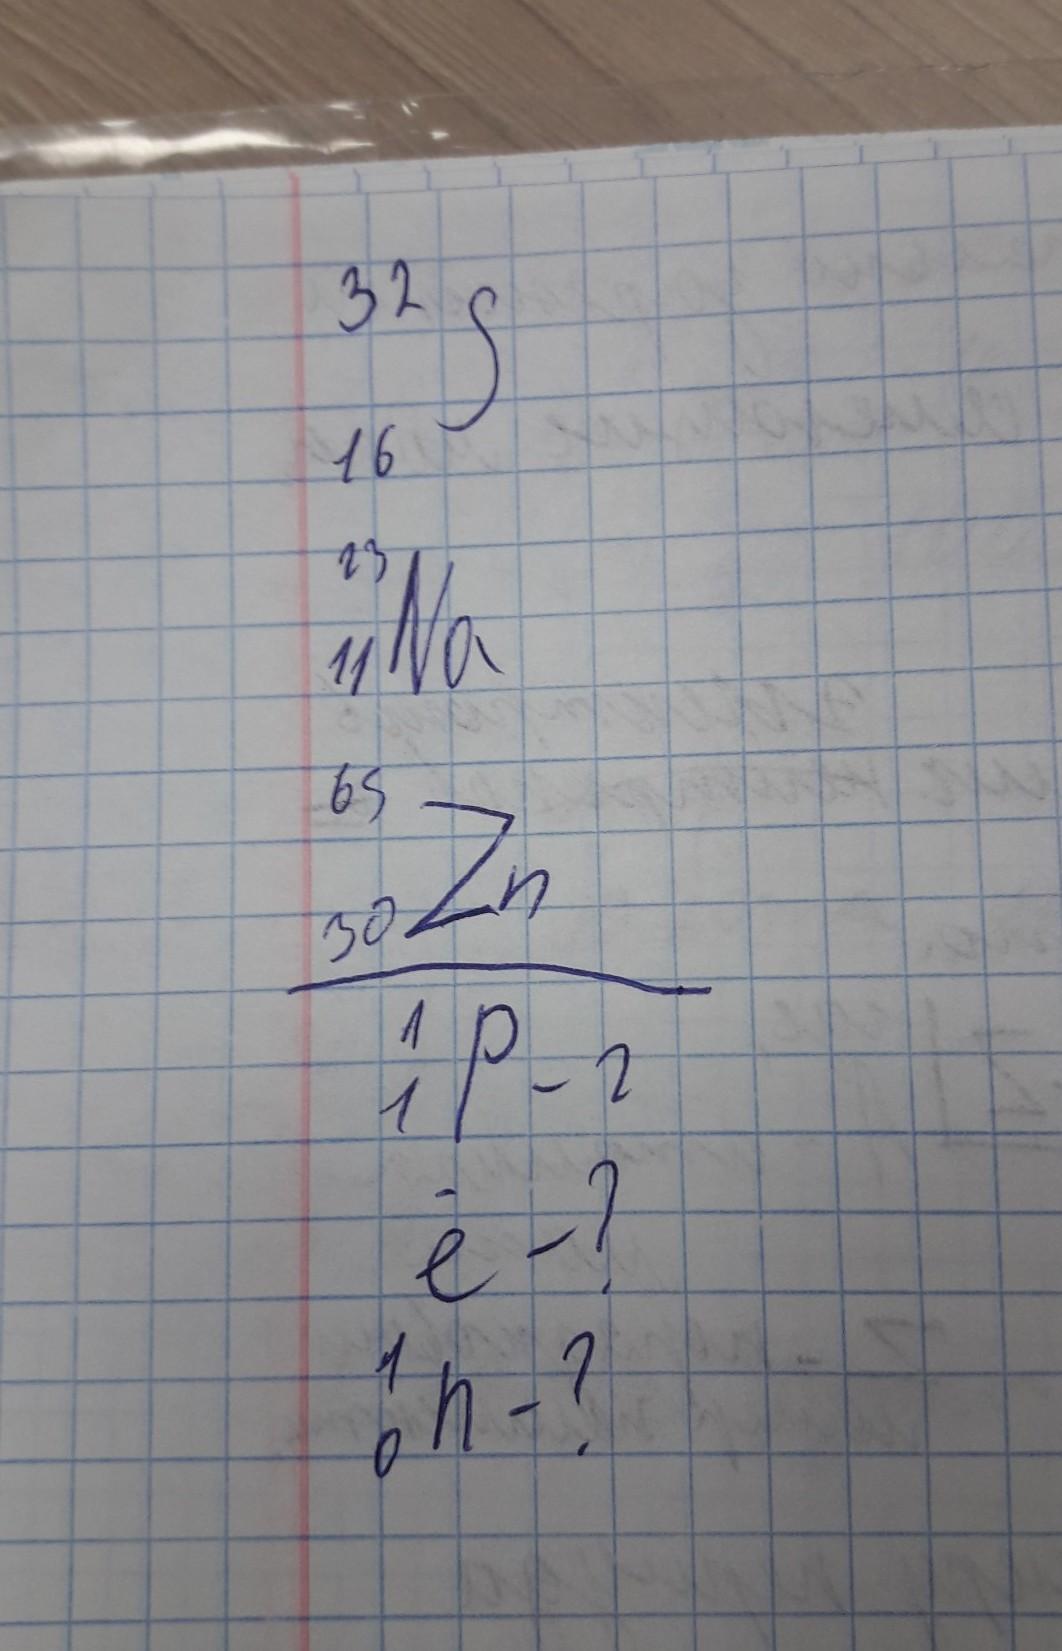 32
S
16
23
Na
11
65
Zn
30
1
p - ?
1
ē - ?
1
n - ?
0